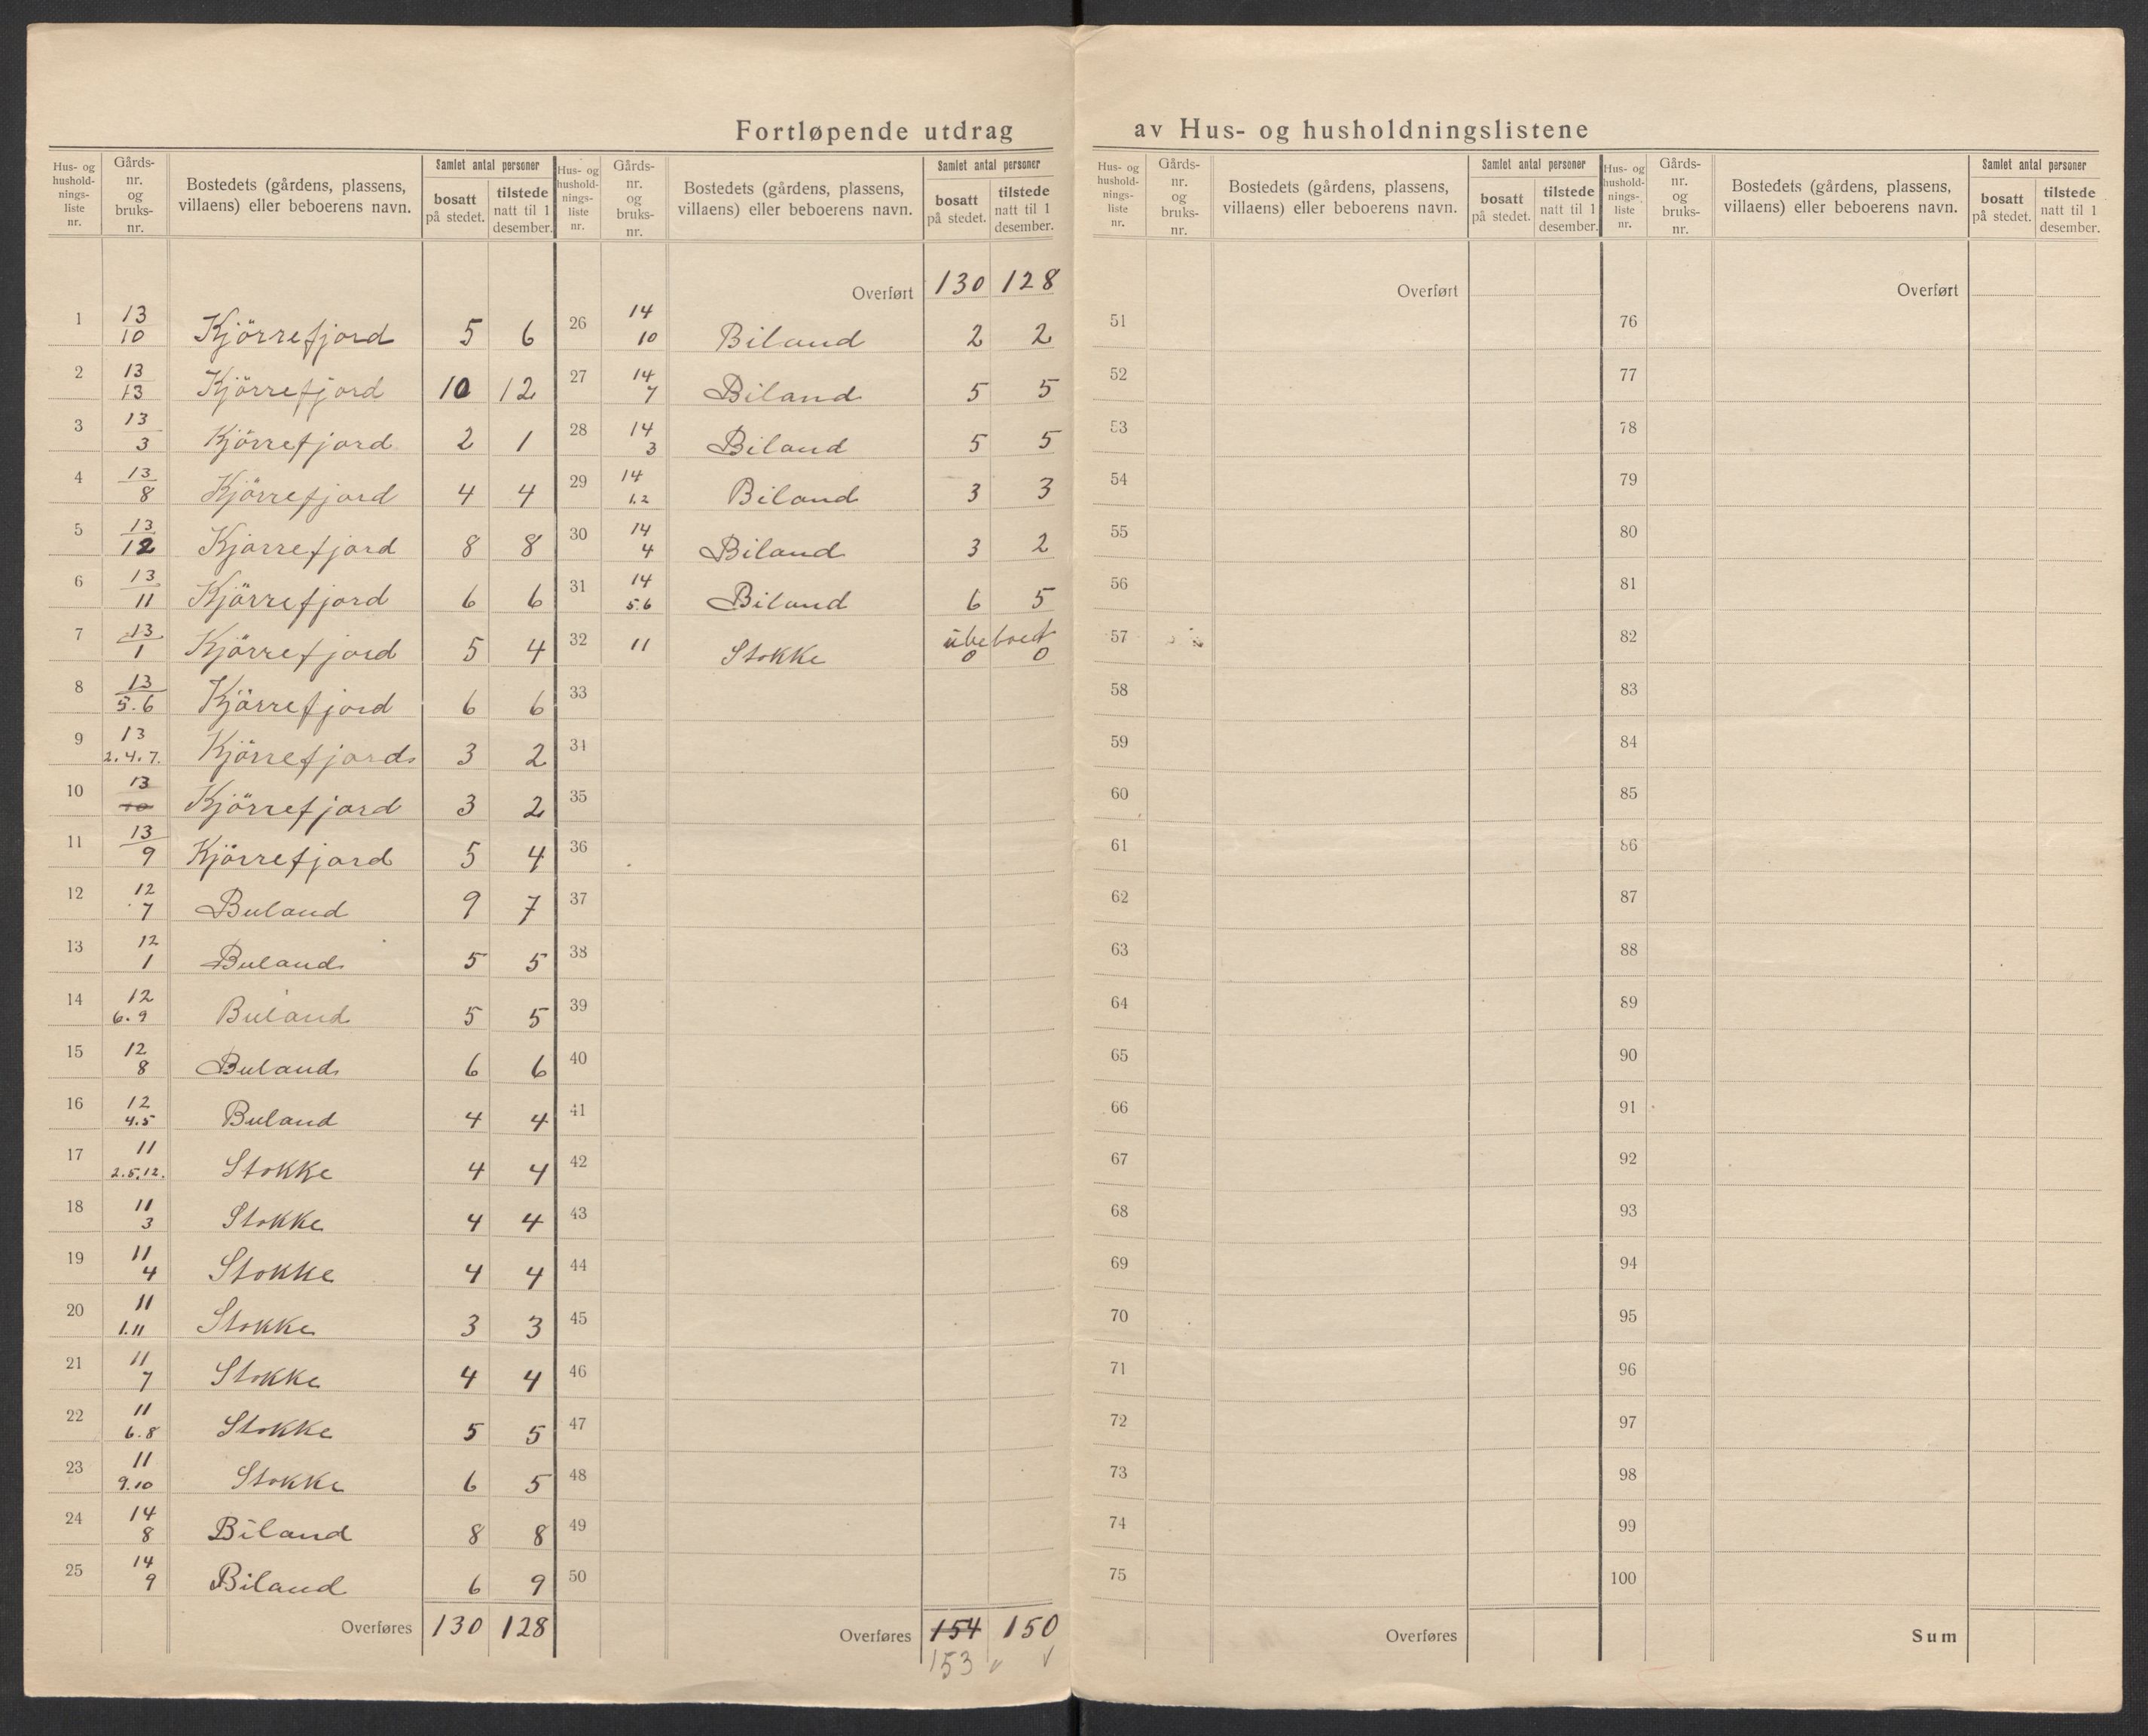 Fortløpende utdrag av Hus- og husholdningslistene
Hus- og hushold-nings-liste nr. | Gårds-nr. og bruks-nr. | Bostedets (gårdens, plassens, villaens) eller beboerens navn. | Samlet antal personer bosatt på stedet. | tilstede natt til 1 desember.
1 13/10 Kjörrefjord 5 6
2 13/13 Kjörrefjord 10 12
3 13/3 Kjörrefjord 2 1
4 13/8 Kjörrefjord 4 4
5 13/12 Kjörrefjord 8 8
6 13/11 Kjörrefjord 6 6
7 13/1 Kjörrefjord 5 4
8 13/5.6 Kjörrefjord 6 6
9 13/2.4.7. Kjörrefjord 3 2
10 13/10 Kjörrefjord 3 2
11 13/9 Kjörrefjord 5 4
12 12/7 Buland 9 7
13 12/1 Buland 5 5
14 12/6.9 Buland 5 5
15 12/8 Buland 6 6
16 12/4.5 Buland 4 4
17 11/2.5.12. Stokke 4 4
18 11/3 Stokke 4 4
19 11/4 Stokke 4 4
20 11/1.11 Stokke 3 3
21 11/7 Stokke 4 4
22 11/6.8 Stokke 5 5
23 11/9.10 Stokke 6 5
24 14/8 Biland 8 8
25 14/9 Biland 6 9
Overføres 130 128
Hus- og hushold-nings-liste nr. | Gårds-nr. og bruks-nr. | Bostedets (gårdens, plassens, villaens) eller beboerens navn. | Samlet antal personer bosatt på stedet. | tilstede natt til 1 desember.
Overført 130 128
26 14/10 Biland 2 2
27 14/7 Biland 5 5
28 14/3 Biland 5 5
29 14/1.2 Biland 3 3
30 14/4 Biland 3 2
31 14/5.6 Biland 6 5
32 11 Stokke ubeboet 0 0
33
34
35
36
37
38
39
40
41
42
43
44
45
46
47
48
49
50
Overføres 154 150
153
Hus- og hushold-nings-liste nr. | Gårds-nr. og bruks-nr. | Bostedets (gårdens, plassens, villaens) eller beboerens navn. | Samlet antal personer bosatt på stedet. | tilstede natt til 1 desember.
Overført
51
52
53
54
55
56
57
58
59
60
61
62
63
64
65
66
67
68
69
70
71
72
73
74
75
Overføres
Hus- og hushold-nings-liste nr. | Gårds-nr. og bruks-nr. | Bostedets (gårdens, plassens, villaens) eller beboerens navn. | Samlet antal personer bosatt på stedet. | tilstede natt til 1 desember.
Overført
76
77
78
79
80
81
82
83
84
85
86
87
88
89
90
91
92
93
94
95
96
97
98
99
100
Sum